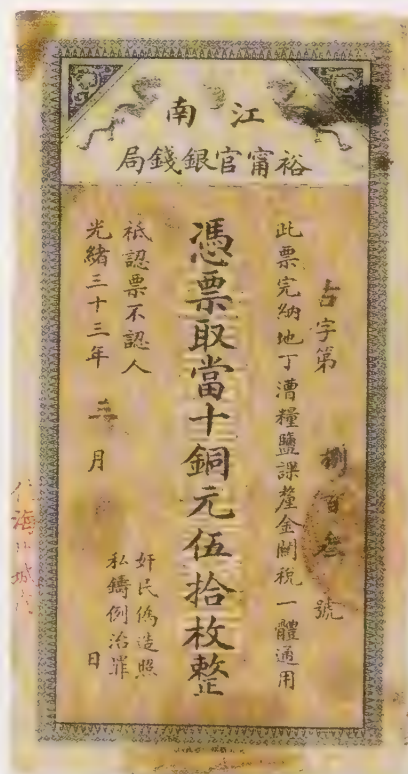 江南
裕甯官銀錢局
占字第捌百叁號
此票完納地丁漕糧鹽課釐金關稅一體通用
憑票取當十銅元伍拾枚整
祗認票不認人
奸民偽造照
私鑄例治罪
光緒三十三年 月 日